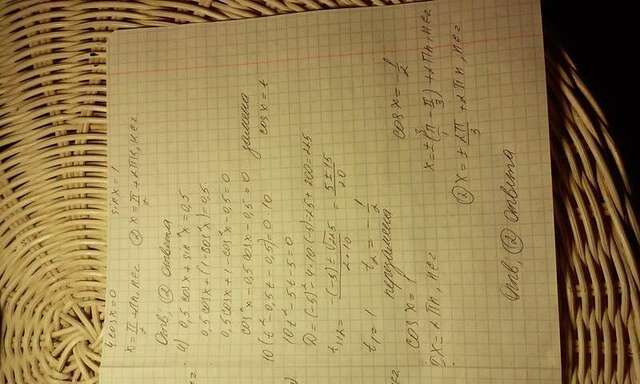 4cosx=0 sinx=1
x=π/2+πn, n∈z ② x=π/2+2πk, k∈z
Отв, ② ответа
а) 0,5 cosx+sin²x=0,5
0,5cosx+(1-cos²x)=0,5
0,5cosx+1-cos²x-0,5=0
cos²x-0,5 cosx-0,5=0 замена
10(t²-0,5t-0,5)=0·10 cosx=t
10t²-5t-5=0
D=(-5)²-4·10·(-5)=25+200=225
t₁,₂=-(-5)±√225/2·10=5±15/20
t₁=1 t₂=-1/2
перезамена
cosx=1 cosx=-1/2
①x=2πn, n∈z x=±(π-π/3)+2πn, n∈z
② x=±2π/3+2πn, n∈z
Отв, ② ответа